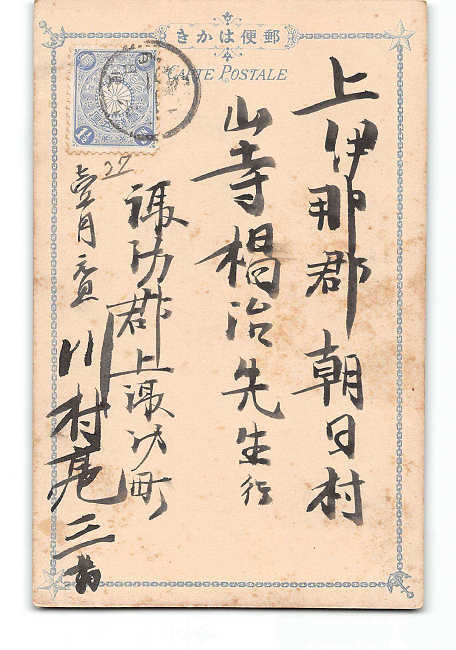 郵便はかき
CARTE POSTALE
1½
27
上伊那郡朝日村
山寺楊治先生行
諏訪郡上諏訪町
壹月元旦
川村
三